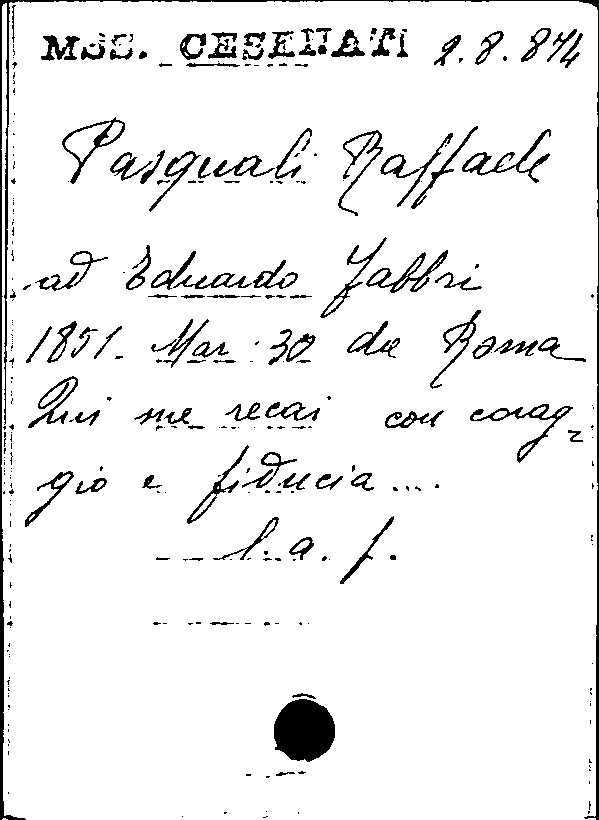 MSS. CESENATI 2.8.874
Pasquali Raffaele
ad Eduardo Fabbri
1851. Mar. 30 da Roma
Qui me recai con corag=
gio e fiducia ....
l. a. f.